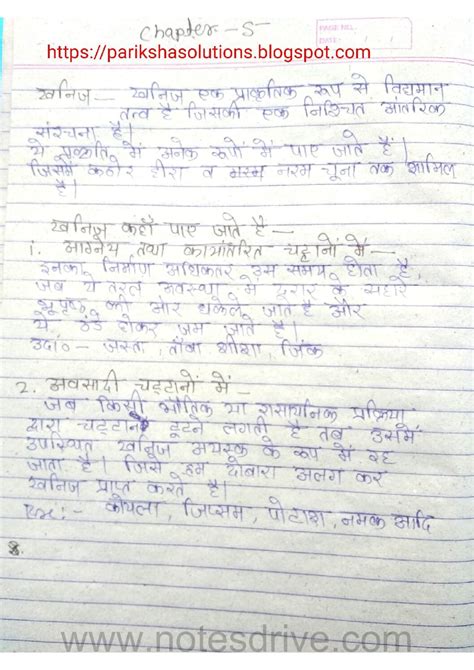 Chapter - 5
PAGE NO.
DATE
https://parikshasolutions.blogspot.com
खनिज — खनिज एक प्राकृतिक रूप से विद्यमान
तत्व है जिसकी एक निश्चित आंतरिक
संरचना है।
ये प्रकृति में अनेक रूपों में पाए जाते हैं।
जिसमें कठोर हीरा व नरम चूना तक शामिल
है।
खनिज कहाँ पाए जाते है —
1. आग्नेय तथा कायांतरित चट्टानों में —
इनका निर्माण अधिकतर उस समय होता है,
जब ये तरल अवस्था में दरार के सहारे
भूपृष्ठ की ओर धकेले जाते है और
ये ठंडे होकर जम जाते है।
उदा० - जस्ता, ताँबा शीशा, जिंक
2. अवसादी चट्टानों में —
जब किसी भौतिक या रासायनिक प्रक्रिया
द्वारा चट्टाने टूटने लगती है तब उसमें
उपस्थित खनिज अयस्क के रूप में रह
जाता है। जिसे हम दोबारा अलग कर
खनिज प्राप्त करते है।
Ex:- कोयला, जिप्सम, पोटाश, नमक आदि
www.notesdrive.com